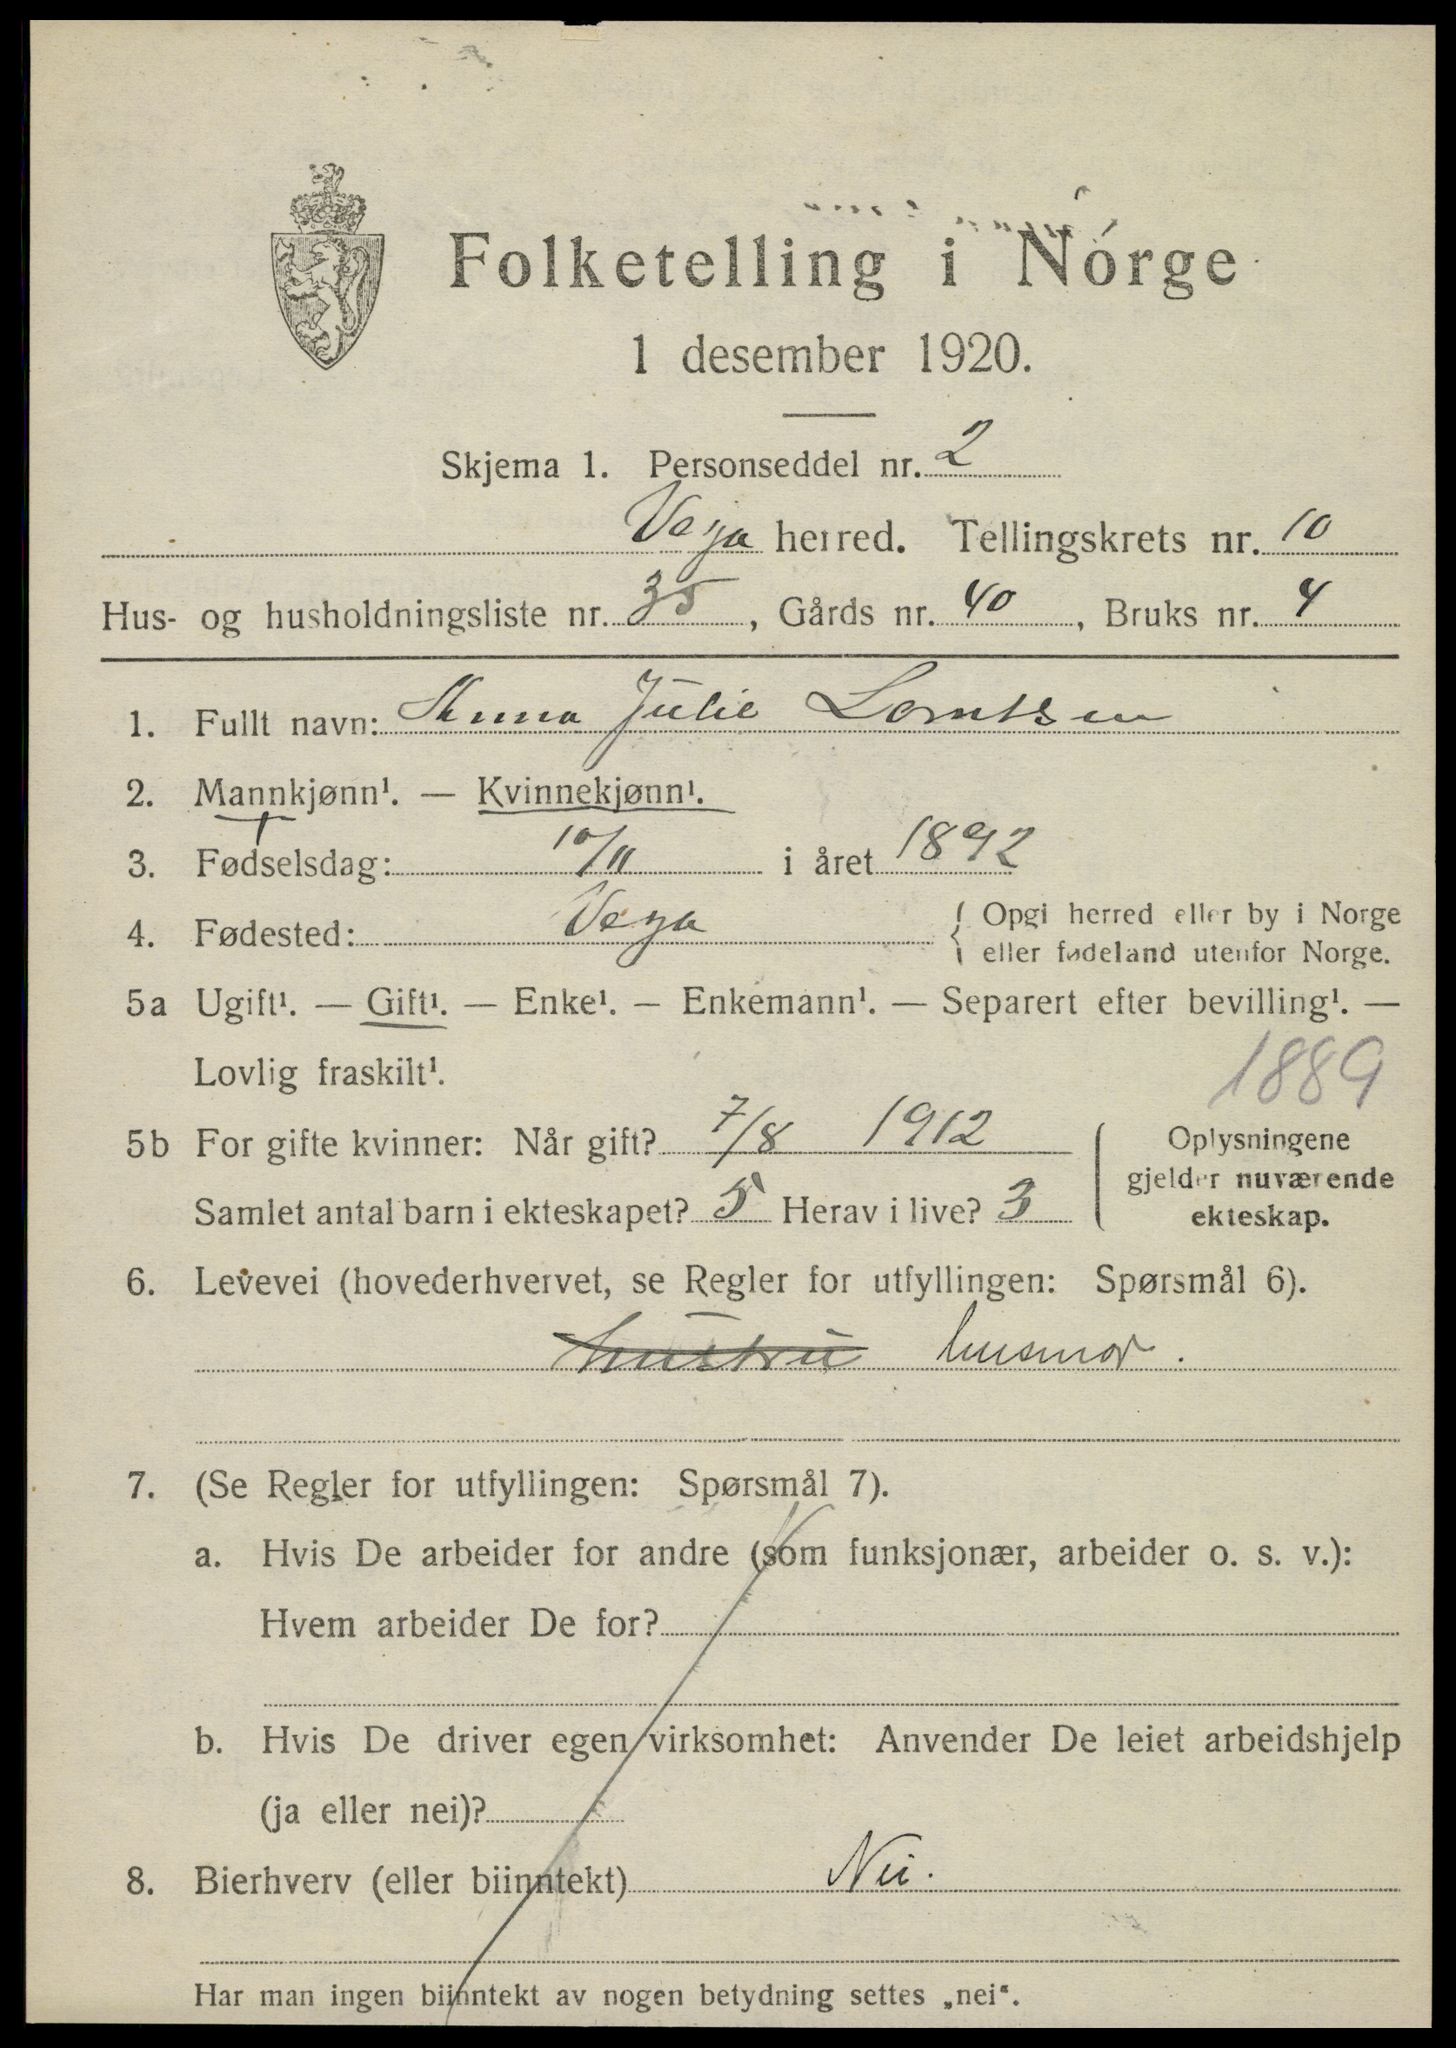 Folketelling i Norge
1 desember 1920.
Skjema 1. Personseddel nr. 2
Vega herred. Tellingskrets nr. 10
Hus- og husholdningsliste nr. 35, Gårds nr. 40, Bruks nr. 4
1. Fullt navn: Anna Julie Lorntsen
2. Mannkjønn¹. — Kvinnekjønn¹.
3. Fødselsdag: 10/11 i året 1892
4. Fødested: Vega { Opgi herred eller by i Norge
eller fødeland utenfor Norge.
5a Ugift¹. — Gift¹. — Enke¹. — Enkemann¹. — Separert efter bevilling¹. —
Lovlig fraskilt¹. 1889
5b For gifte kvinner: Når gift? 7/8 1912
Samlet antal barn i ekteskapet? 5 Herav i live? 3
Oplysningene
gjelder nuværende
ekteskap.
6. Levevei (hovederhvervet, se Regler for utfyllingen: Spørsmål 6).
hustru husmor.
7. (Se Regler for utfyllingen: Spørsmål 7).
a. Hvis De arbeider for andre (som funksjonær, arbeider o. s. v.):
Hvem arbeider De for?
b. Hvis De driver egen virksomhet: Anvender De leiet arbeidshjelp
(ja eller nei)?
8. Bierhverv (eller biinntekt) Nei.
Har man ingen biinntekt av nogen betydning settes „nei“.